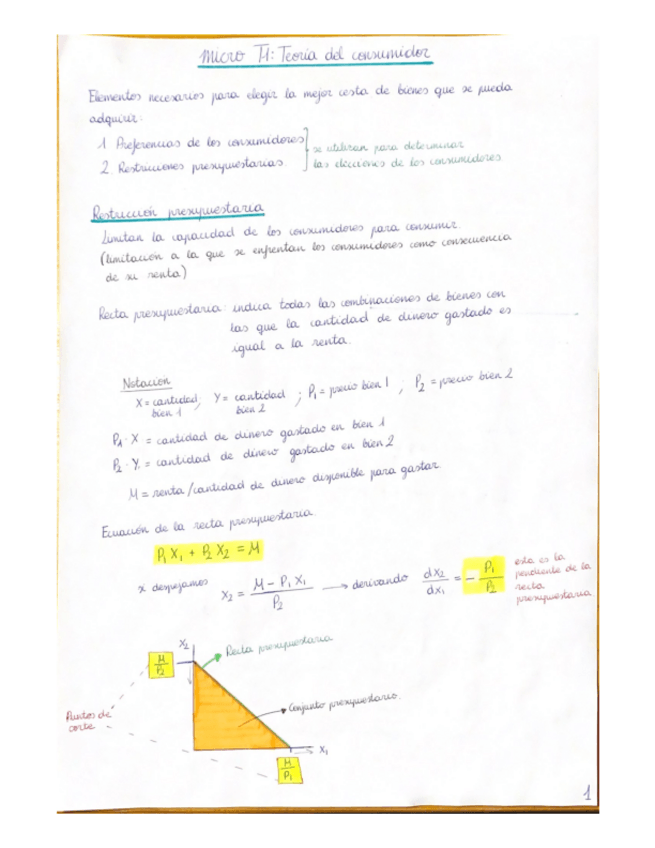 Micro T1: Teoría del consumidor
Elementos necesarios para elegir la mejor cesta de bienes que se pueda
adquirir:
1. Preferencias de los consumidores
2. Restricciones presupuestarias
se utilizan para determinar
las elecciones de los consumidores
Restricción presupuestaria
Limitan la capacidad de los consumidores para consumir.
(limitación a la que se enfrentan los consumidores como consecuencia
de su renta)
Recta presupuestaria: indica todas las combinaciones de bienes con
las que la cantidad de dinero gastado es
igual a la renta.
Notación
X = cantidad bien 1; Y = cantidad bien 2; P₁ = precio bien 1; P₂ = precio bien 2
P₁ · X = cantidad de dinero gastado en bien 1
P₂ · Y = cantidad de dinero gastado en bien 2
M = renta/cantidad de dinero disponible para gastar.
Ecuación de la recta presupuestaria
P₁ X₁ + P₂ X₂ = M
x despejamos X₂ = (M - P₁ X₁) / P₂ → derivando dx₂/dx₁ = - P₁/P₂
esta es la
pendiente de la
recta
presupuestaria
X₂
Recta presupuestaria
M/P₂
Conjunto presupuestario.
Puntos de
corte
X₁
M/P₁
1